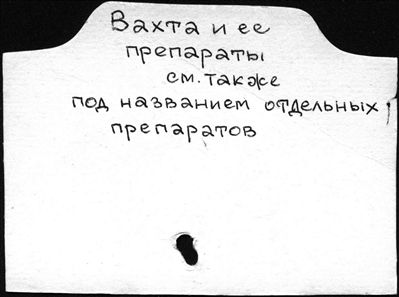 Вахта и ее
препараты
см. также
под названием отдельных
препаратов